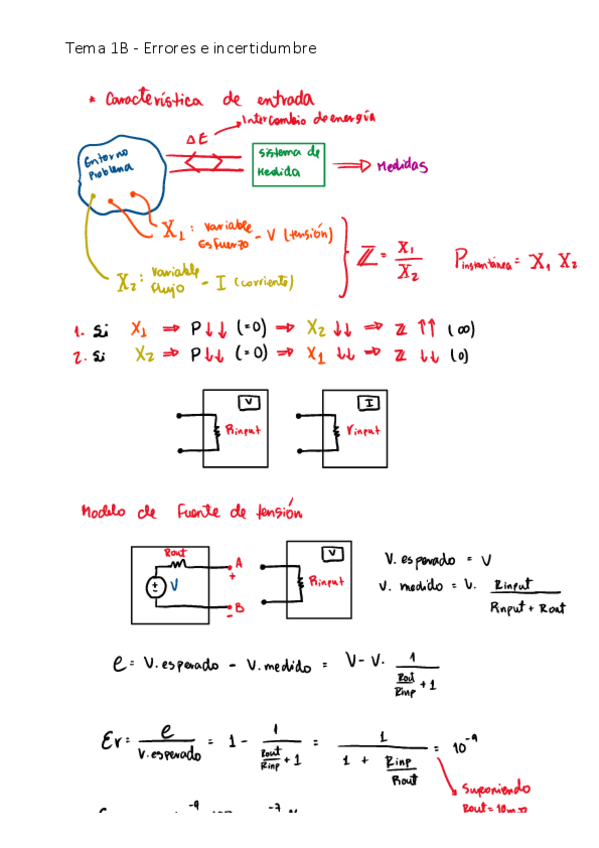 Tema 1B - Errores e incertidumbre
* Característica de entrada
Intercambio de energía
ΔE
Entorno
Problema
Sistema de
Medida
Medidas
X₁: Variable Esfuerzo - V (tensión)
X₂: Variable flujo - I (corriente)
Z = X₁ / X₂
Pinstantánea = X₁ X₂
1. Si X₁ ⇒ P↓↓ (=0) ⇒ X₂ ↓↓ ⇒ Z ↑↑ (∞)
2. Si X₂ ⇒ P↓↓ (=0) ⇒ X₁ ↓↓ ⇒ Z ↓↓ (0)
V
Rinput
I
rinput
Modelo de Fuente de tensión
Rout
V
A
+
B
-
V
Rinput
V. esperado = V
V. medido = V. Rinput / (Rnput + Rout)
e = V. esperado - V. medido = V - V. 1 / (Rout/Rinp + 1)
Er = e / V. esperado = 1 - 1 / (Rout/Rinp + 1) = 1 / (1 + Rinp/Rout) = 10⁻⁹
Suponiendo
Rout = 10mΩ